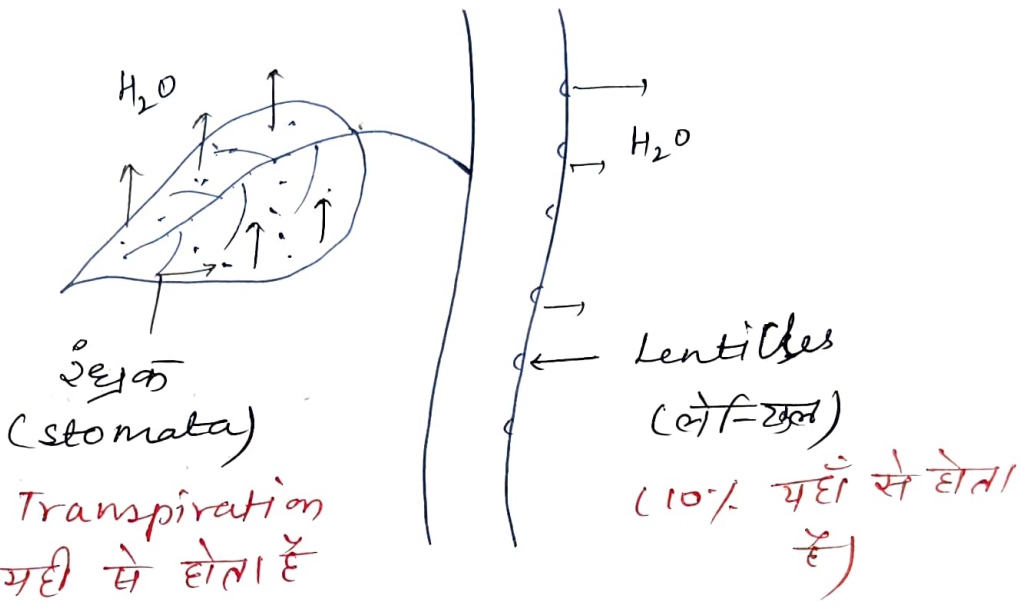 H₂O
H₂O
रंध्रक
(stomata)
Transpiration
यही से होता है
Lenticles
(लेन्टिसल)
(10% यहाँ से होता
है)